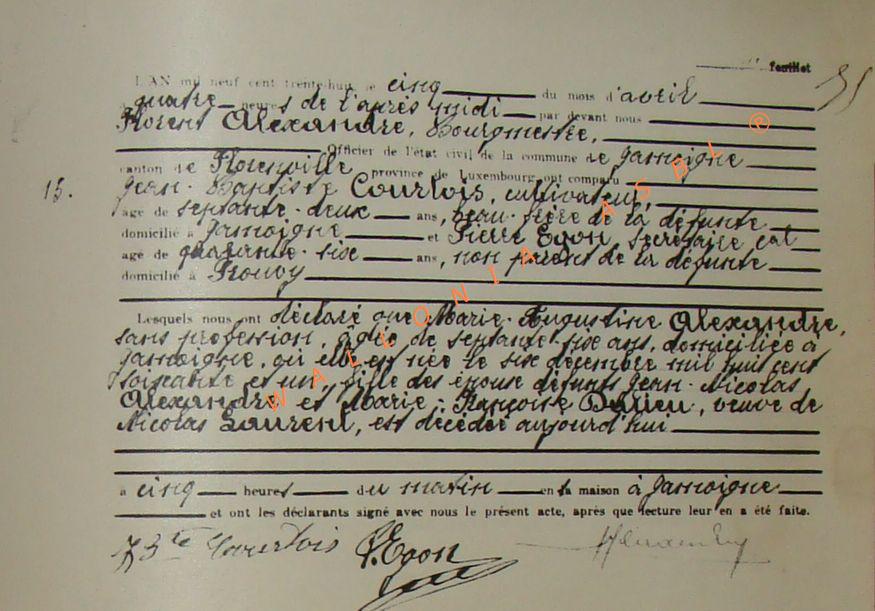 feuillet
35
L'AN mil neuf cent trente-huit, le cinq du mois d'avril
à quatre heures de l'après midi par devant nous
Florent Alexandre, Bourgmestre,
Officier de l'état civil de la commune de Jamoigne
canton de Florenville province de Luxembourg, ont comparu
15.
Jean-Baptiste Courtois, cultivateur,
âgé de septante-deux ans, beau-frère de la défunte
domicilié à Jamoigne et Pierre Egon secrétaire cal
âgé de quarante-six ans, non parent de la défunte
domicilié à Prouvy
Lesquels nous ont déclaré que Marie-Augustine Alexandre,
sans profession, âgée de septante-six ans, domiciliée à
Jamoigne, où elle est née le six décembre mil huit cent
soixante et un, fille des époux défunts Jean-Nicolas
Alexandre et Marie-Françoise Dulieu, veuve de
Nicolas Laurent, est décédée aujourd'hui
à cinq heures du matin en sa maison à Jamoigne
et ont les déclarants signé avec nous le présent acte, après que lecture leur en a été faite.
J Bte Courtois P. Egon Alexandre
WALLONIA ASBL ®